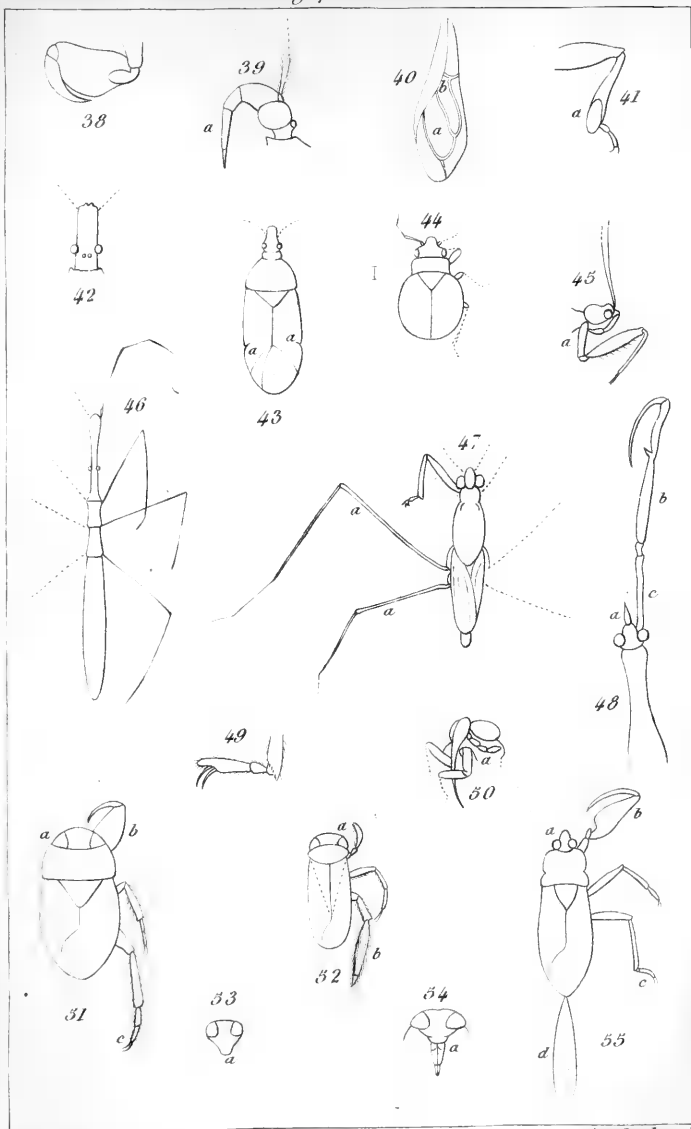 38
39
a
40
b
a
41
a
42
43
a
a
44
I
45
a
46
47
a
a
48
a
b
c
49
50
a
51
a
b
c
52
a
b
53
a
54
a
55
a
b
c
d